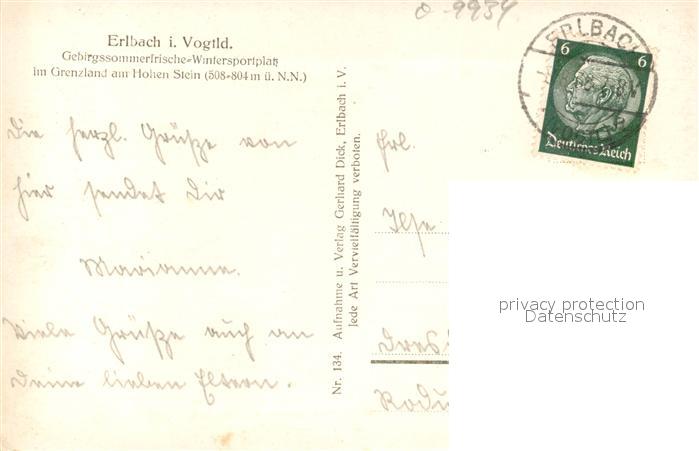 Erlbach i. Vogtld.
Gebirgssommerfrische-Wintersportplatz
im Grenzland am Hohen Stein (508-804 m ü. N.N.)
Die herzl. Grüße von
hier sendet Dir
Marianne.
Viele Grüße auch an
Deine lieben Eltern.
Nr. 134. Aufnahme u. Verlag Gerhard Dick, Erlbach i. V.
Jede Art Vervielfältigung verboten.
9934
ERLBACH
6 6
Deutsches Reich
Frl.
Ilse
privacy protection
Datenschutz